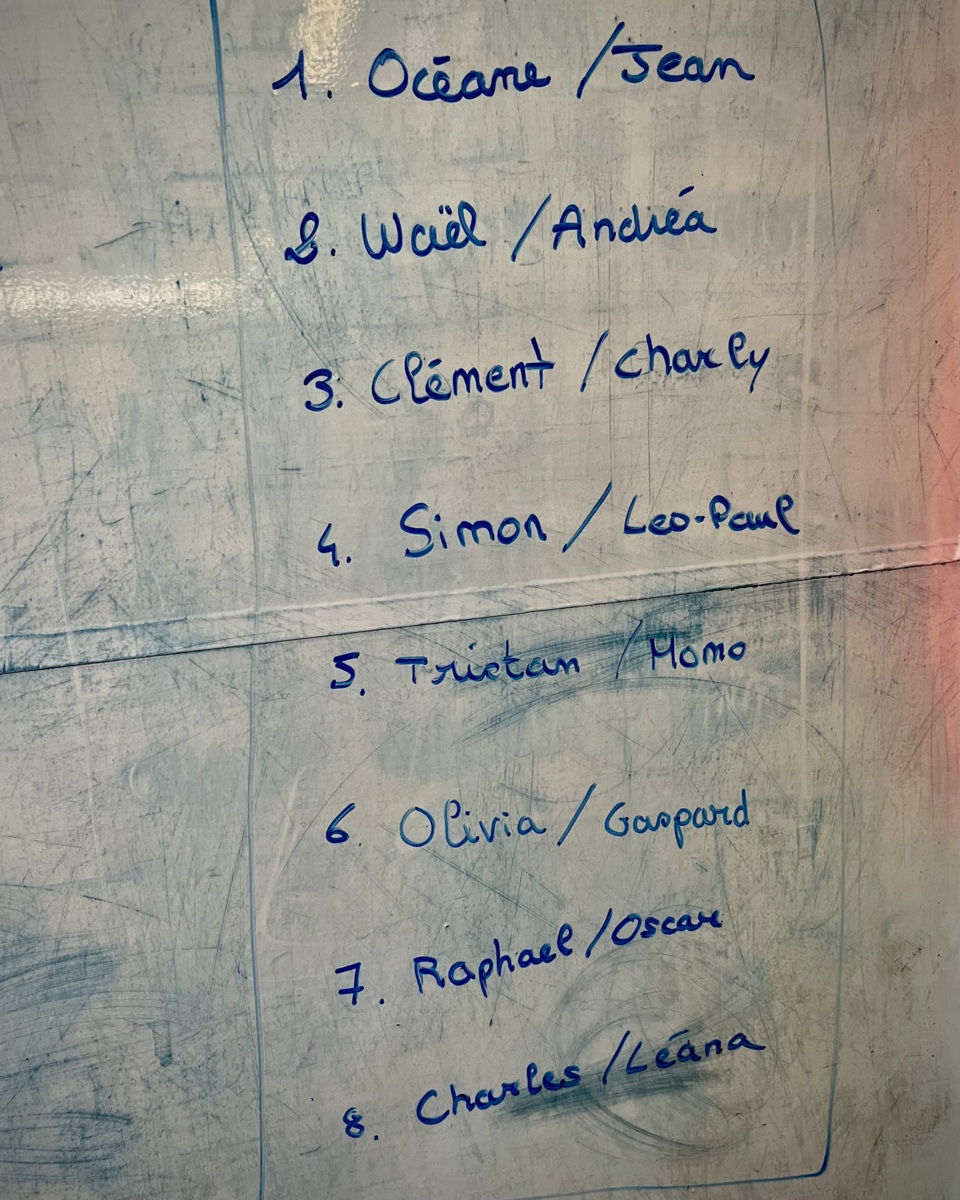 1. Océane / Jean
2. Waël / Andréa
3. Clément / Charly
4. Simon / Leo-Paul
5. Tristan / Momo
6. Olivia / Gaspard
7. Raphael / Oscar
8. Charles / Léana